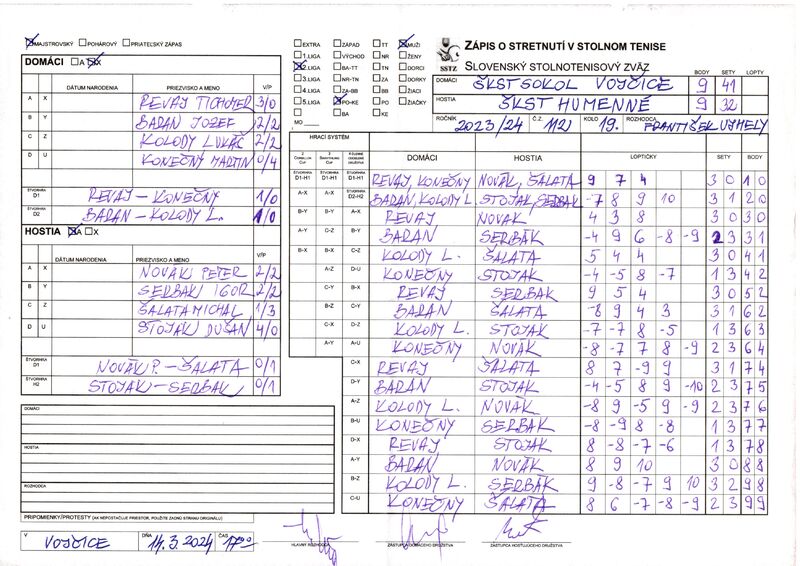 MAJSTROVSKÝ POHÁROVÝ PRIATEĽSKÝ ZÁPAS
DOMÁCI A X
DÁTUM NARODENIA PRIEZVISKO A MENO V/P
A X REVAY TICHOMER 3/0
B Y BARAN JOZEF 2/2
C Z KOLODY LUKÁČ 2/2
D U KONEČNÝ MARTIN 0/4
ŠTVORHRA D1 REVAY - KONEČNÝ 1/0
ŠTVORHRA D2 BARAN - KOLODY L. 1/0
HOSTIA A X
DÁTUM NARODENIA PRIEZVISKO A MENO V/P
A X NOVÁK PETER 2/2
B Y SERBÁK IGOR 2/2
C Z ŠALATA MICHAL 1/3
D U STOJÁK DUŠAN 4/0
ŠTVORHRA D1 NOVÁK P. - ŠALATA 0/1
ŠTVORHRA H2 STOJAK - SERBÁK 0/1
DOMÁCI
HOSTIA
ROZHODCA
PRIPOMIENKY/PROTESTY (AK NEPOSTAČUJE PRIESTOR, POUŽITE ZADNÚ STRANU ORIGINÁLU)
V VOJČICE DŇA 14.3.2024 ČAS 17:00
EXTRA ZÁPAD TT MUŽI
1.LIGA VÝCHOD NR ŽENY
2.LIGA BA-TT TN DORCI
3.LIGA NR-TN ZA DORKY
4.LIGA ZA-BB BB ŽIACI
5.LIGA PO-KE PO ŽIAČKY
BA KE
MO
SSTZ
ZÁPIS O STRETNUTÍ V STOLNOM TENISE
SLOVENSKÝ STOLNOTENISOVÝ ZVÄZ
BODY SETY LOPTY
DOMÁCI ŠKST SOKOL VOJČICE 9 41
HOSTIA ŠKST HUMENNÉ 9 32
ROČNÍK 2023/24 Č.Z. 112 KOLO 19. ROZHODCA FRANTIŠEK UJHELY
HRACÍ SYSTÉM
DOMÁCI HOSTIA LOPTIČKY SETY BODY
ŠTVORHRA D1-H1 ŠTVORHRA D1-H1 ŠTVORHRA D1-H1 REVAY, KONEČNÝ NOVÁK, ŠALATA 9 7 4 3 0 1 0
A-X A-X ŠTVORHRA D2-H2 BARAN, KOLODY L. STOJAK, SERBÁK -7 8 9 10 3 1 2 0
B-Y B-Y A-X REVAY NOVAK 4 3 8 3 0 3 0
A-Y C-Z B-Y BARAN SERBÁK -4 9 6 -8 -9 2 3 3 1
B-X B-X C-Z KOLODY L. ŠALATA 5 4 4 3 0 4 1
A-Z D-U KONEČNÝ STOJAK -4 -5 8 -7 1 3 4 2
C-Y B-X REVAY SERBÁK 9 5 4 3 0 5 2
B-Z C-Y BARAN ŠALATA -8 9 4 3 3 1 6 2
C-X D-Z KOLODY L. STOJÁK -7 -7 8 -5 1 3 6 3
A-Y A-U KONEČNÝ NOVÁK -8 -7 7 8 -9 2 3 6 4
C-X REVAY ŠALATA 8 7 -9 9 3 1 7 4
D-Y BARAN STOJÁK -4 -5 8 9 -10 2 3 7 5
A-Z KOLODY L. NOVÁK -8 9 -5 9 -9 2 3 7 6
B-U KONEČNÝ SERBÁK -8 -9 8 -8 1 3 7 7
D-X REVAY STOJAK 8 -8 -7 -6 1 3 7 8
A-Y BARAN NOVÁK 8 9 10 3 0 8 8
B-Z KOLODY L. SERBÁK 9 -8 -7 9 10 3 2 9 8
C-U KONEČNÝ ŠALATA 8 6 -7 -8 -9 2 3 9 9
HLAVNÝ ROZHODCA ZÁSTUPCA DOMÁCEHO DRUŽSTVA ZÁSTUPCA HOSŤUJÚCEHO DRUŽSTVA